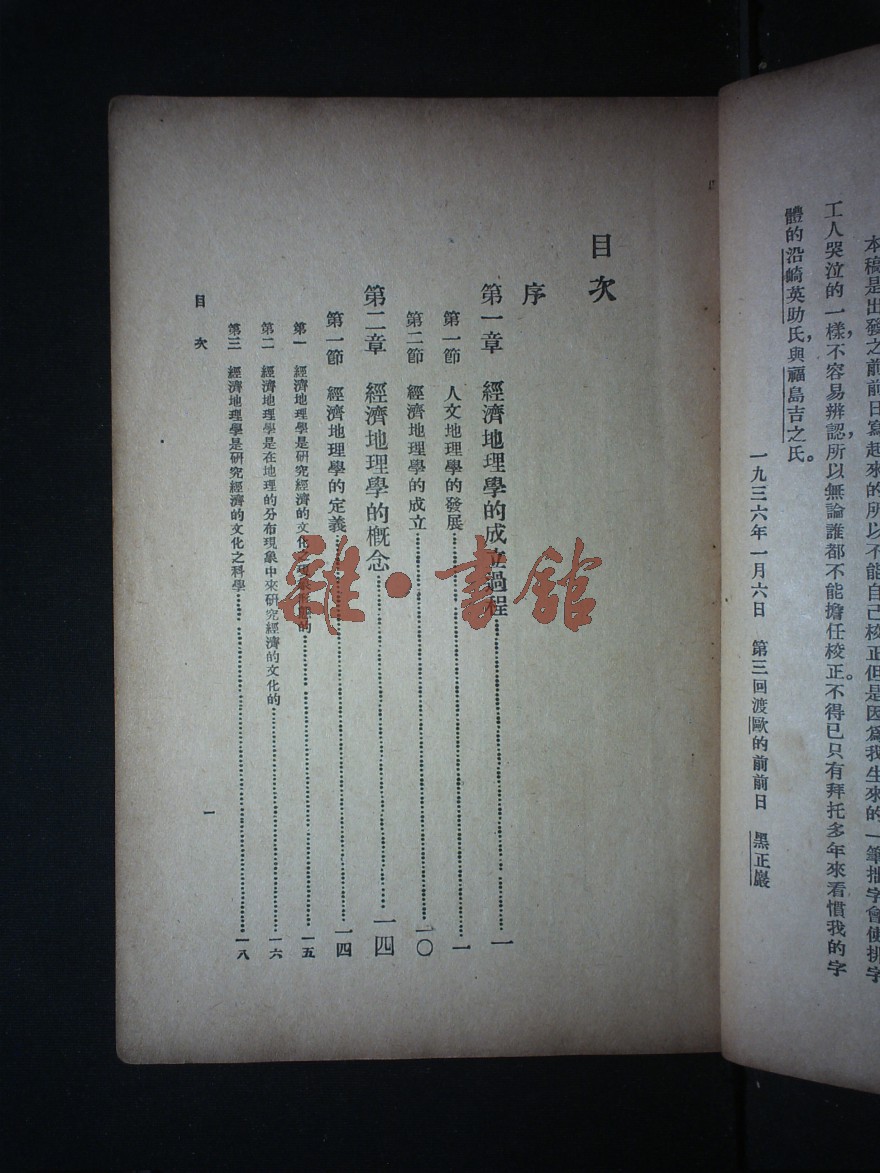 本稿是出發之前前日寫起來的所以不能自己校正但是因爲我生來的一筆拙字會使排字
工人哭泣的一樣，不容易辨認，所以無論誰都不能擔任校正。不得已只有拜托多年來看慣我的字
體的沿崎英助氏，與福島吉之氏。
一九三六年一月六日　第三回渡歐的前前日　黑正巖
目次
序
第一章　經濟地理學的成立過程…………一
第一節　人文地理學的發展…………一
第二節　經濟地理學的成立…………一〇
第二章　經濟地理學的概念…………一四
第一節　經濟地理學的定義…………一四
第一　經濟地理學是研究經濟的文化之的…………一五
第二　經濟地理學是在地理的分布現象中來研究經濟的文化的…………一六
第三　經濟地理學是研究經濟的文化之科學…………一八
目次
一
雜·書館